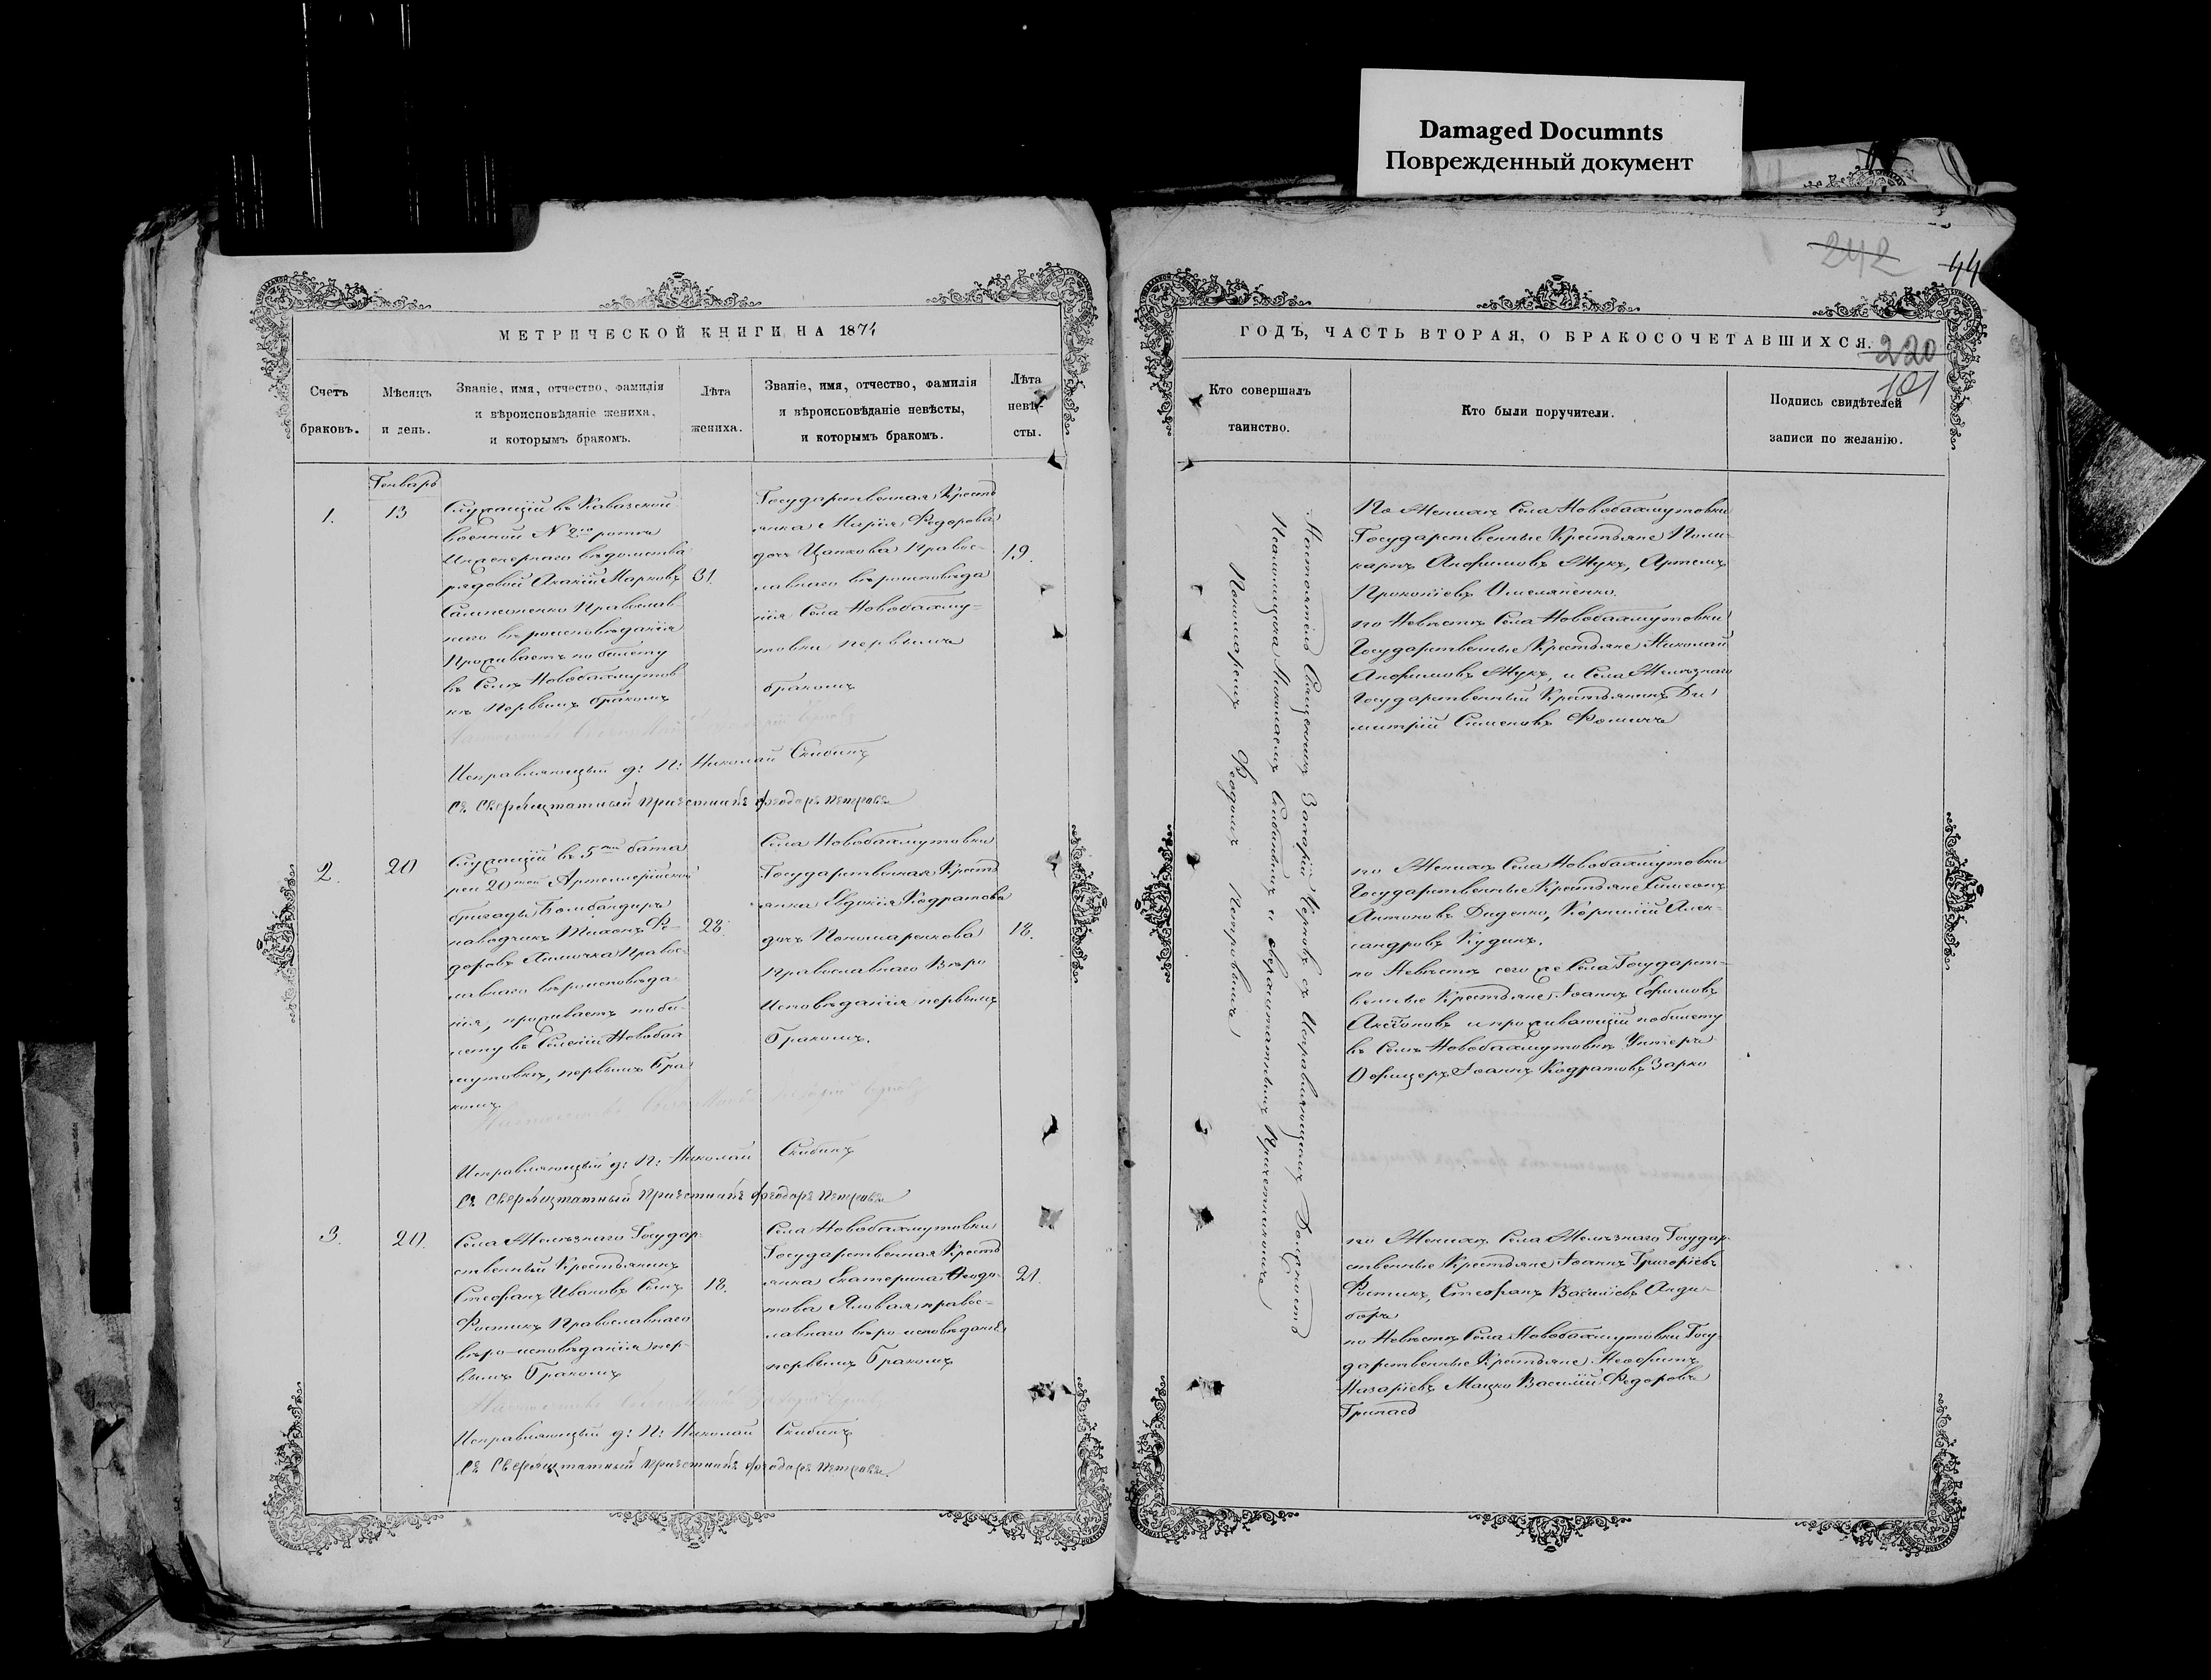 Damaged Documnts
Поврежденный документ
242
44
МЕТРИЧЕСКОЙ КНИГИ НА 1874
Счетъ браковъ.
Мѣсяцъ и день.
Званіе, имя, отчество, фамилія
и вѣроисповѣданіе жениха,
и которымъ бракомъ.
Лѣта жениха.
Званіе, имя, отчество, фамилія
и вѣроисповѣданіе невѣсты,
и которымъ бракомъ.
Лѣта невѣсты.
Генварь
1.
13
Служащій въ Кавказской
военной N 2го роты
Инженернаго вѣдомства
рядовой Акакій Марковъ
Самсоненко Православ
наго вѣроисповѣданія
Проживаетъ по билету
въ Селѣ Новобахмутов
кѣ Первымъ бракомъ
31.
Государственная Кресть
янка Марія Федорова
дочь Цапкова Правос-
лавнаго вѣроисповѣда
нія Села Новобахму-
товки первымъ
бракомъ
19.
Исправляющій д: П: Николай Скибинъ
Съ Сверхштатный Причетникъ Феодоръ Петровъ
2.
20
Служащій въ 5ой бата
реи 20той Артеллерійской
бригады Бомбандиръ
наводчикъ Тихонъ Фе-
доровъ Лимочка Правос-
лавнаго вѣроисповѣда-
нія, проживаетъ поби-
лету въ Селеніи Новобах
мутовкѣ, первымъ Бра
комъ.
28.
Села Новобахмутовки
Государственная Кресть
янка Евдокія Кодратова
дочь Пономаренкова
Православнаго Вѣро
Исповѣданія первымъ
Бракомъ.
18.
Исправляющій д: П: Николай Скибинъ
Съ Сверхштатный Причетникъ Феодоръ Петровъ
3.
20.
Села Желѣзнаго Государ-
ственный Крестьянинъ
Стефанъ Ивановъ Сынъ
Фостикъ Православнаго
вѣро-исповѣданія пер-
вымъ Бракомъ
18.
Села Новобахмутовки
Государственная Кресть
янка Екатерина Феодо-
това Яловая правос-
лавнаго вѣро-исповѣданія
первымъ Бракомъ
21.
Исправляющій д: П: Николай Скибинъ
Съ Сверхштатный Причетникъ Феодоръ Петровъ.
ГОДЪ, ЧАСТЬ ВТОРАЯ, О БРАКОСОЧЕТАВШИХСЯ.
220
101
Кто совершалъ таинство.
Кто были поручители.
Подпись свидѣтелей записи по желанію.
Настоятель Священникъ Захарій Чернявъ съ Исправляющимъ Должность
Псаломщика Николаемъ Скибинымъ и сверхштатнымъ Причетникомъ
Пономаремъ Феодомъ Петровымъ
По Женихѣ Села Новобахмутовки
Государственные Крестьяне Поли-
карпъ Анфимовъ Жукъ, Артемъ
Прокопіевъ Омеляненко.
по Невѣстѣ Села Новобахмутовки
Государственные Крестьяне Николай
Анфимовъ Жукъ, и Села Желѣзнаго
Государственный Крестьянинъ Ди
митрій Сименовъ Фомичъ
по Женихѣ Села Новобахмутовки
Государственные Крестьяне Симеонъ
Антоновъ Диденко, Корнилій Алек-
сандровъ Кудинъ.
по Невѣстѣ сего же Села Государст-
венные Крестьяне Іоаннъ Ефимовъ
Аксіоновъ и проживающій побилету
въ Селѣ Новобахмутовкѣ Унтеръ
Офицеръ Іоаннъ Кодратовъ Зарко
по Женихѣ Села Желѣзнаго Государ-
ственные Крестьяне Іоаннъ Григоріевъ
Фостикъ, Стефанъ Василіевъ Анди-
боръ
по Невѣстѣ Села Новобахмутовки Госу-
дарственные Крестьяне Неофитъ
Назаріевъ Мацко Василій Федоровъ
Трипасъ